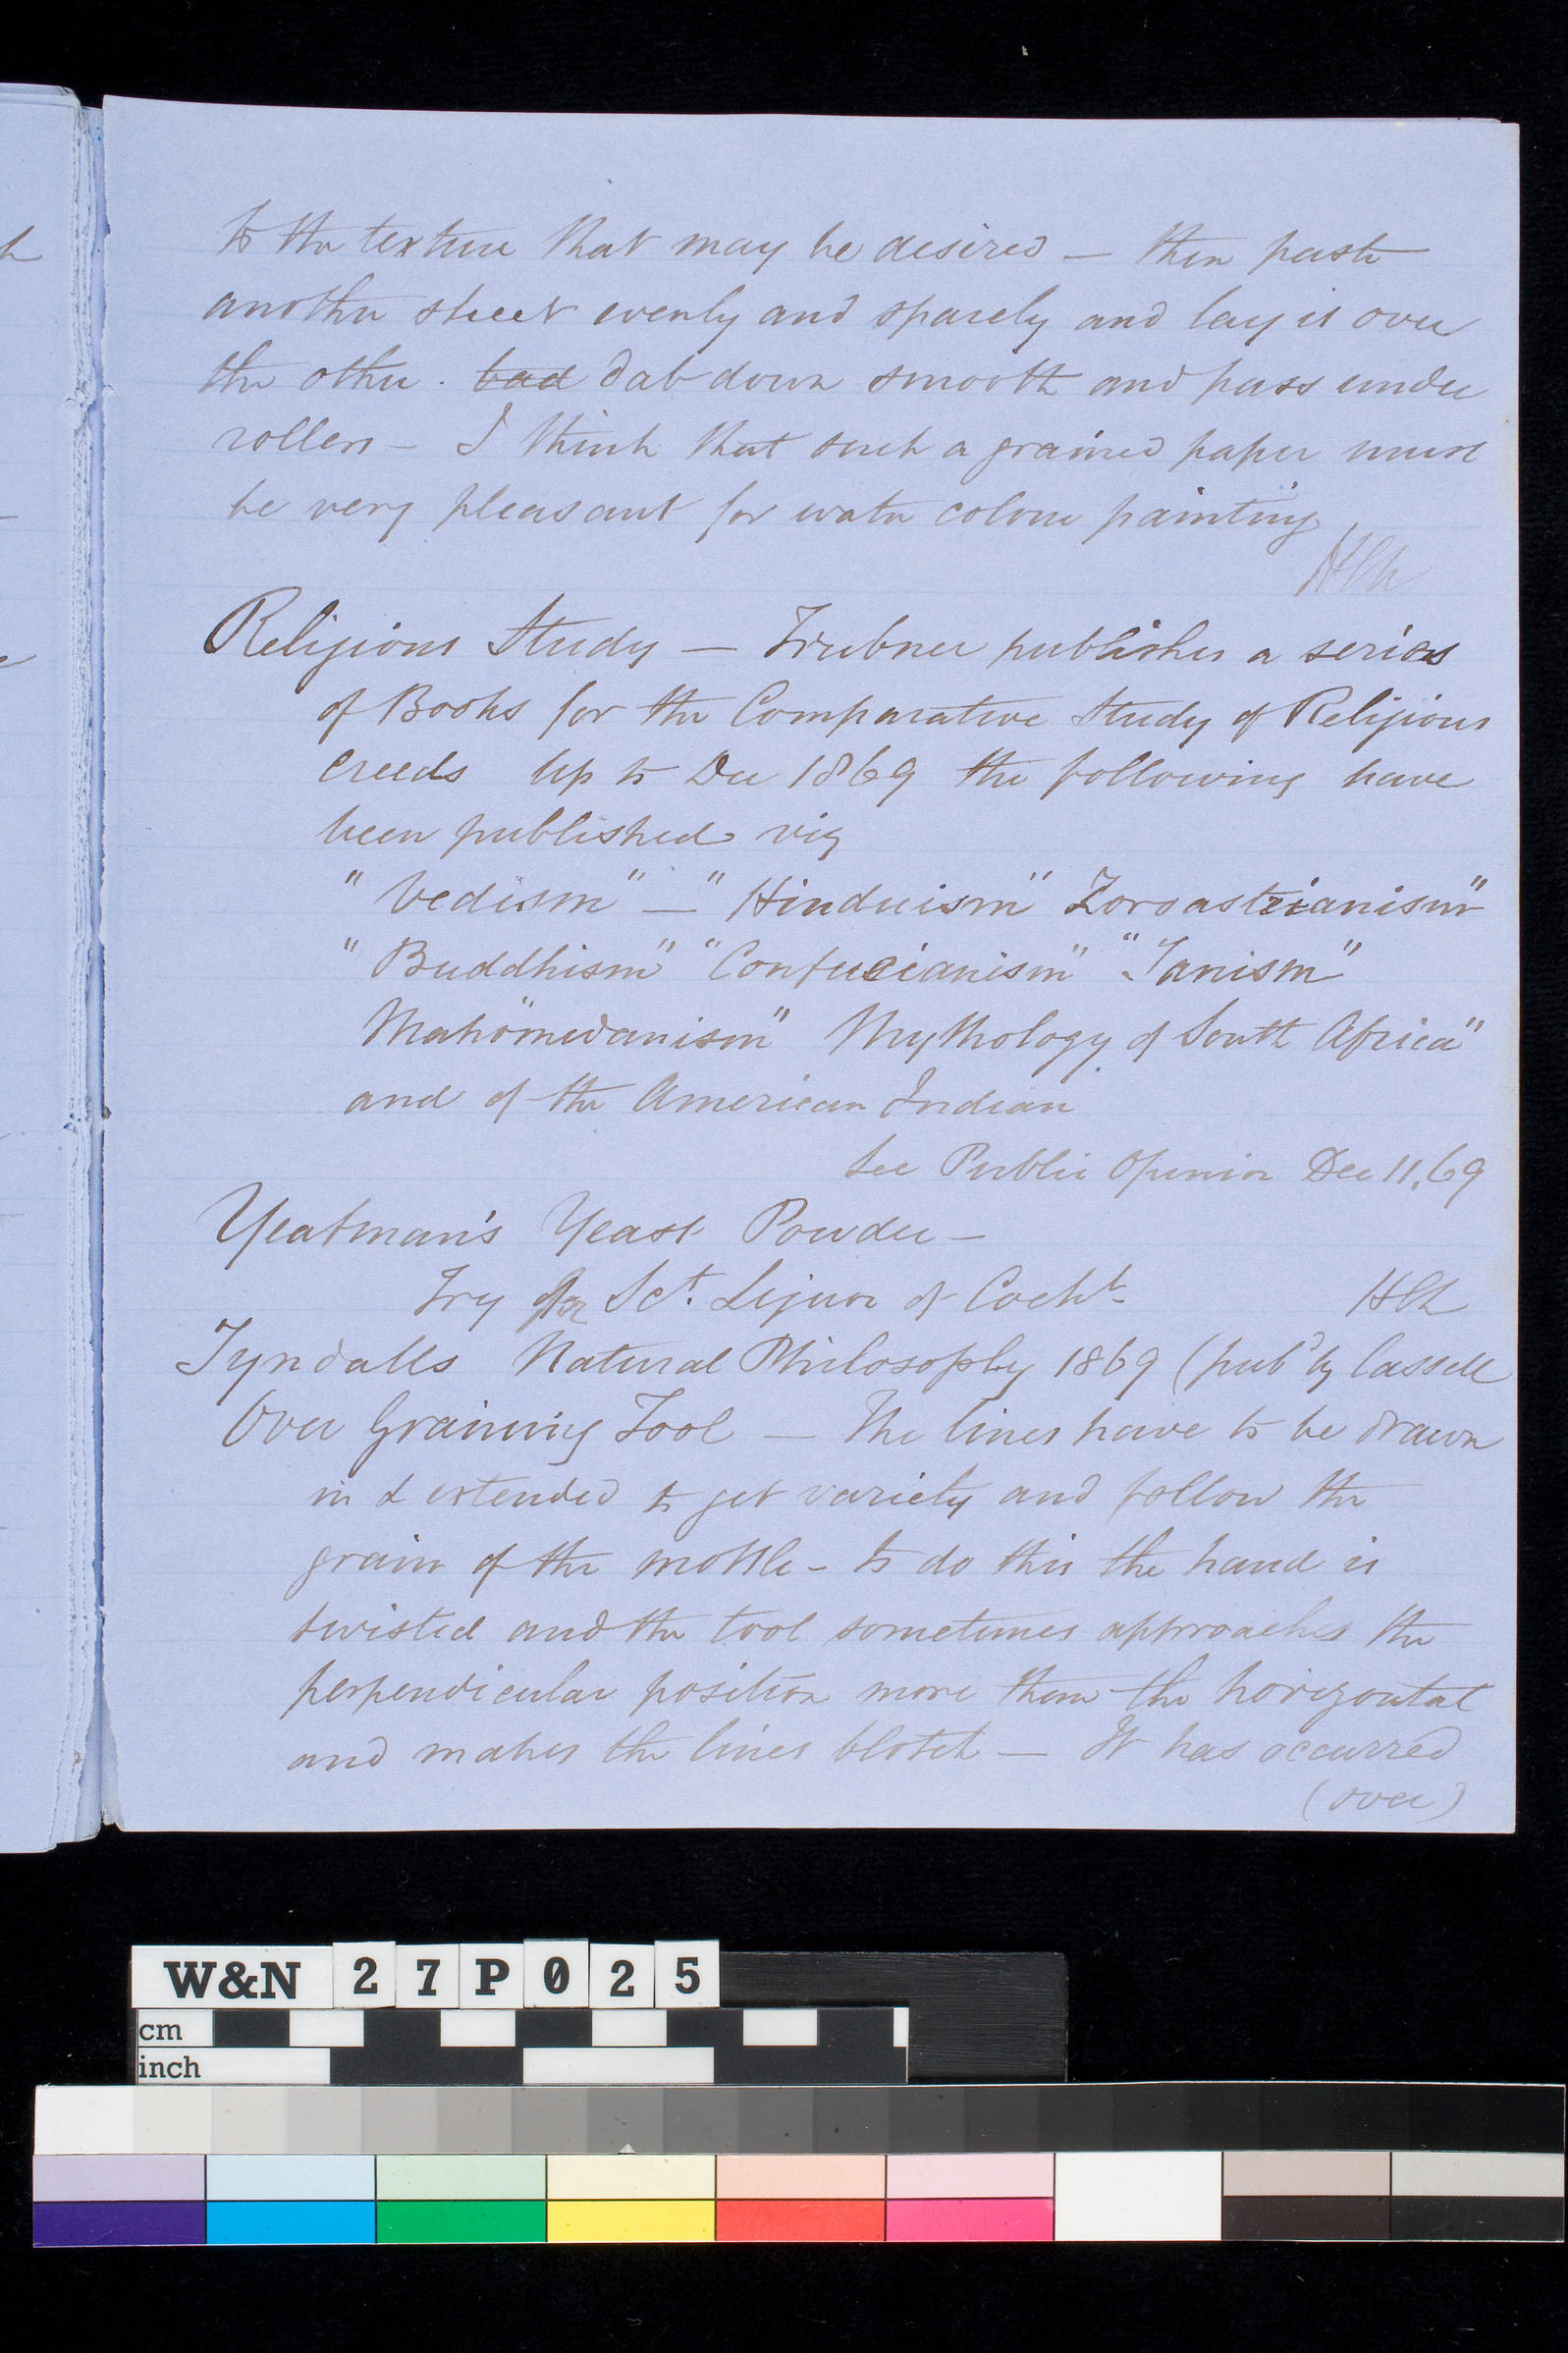 to the texture that may be desired — then paste
another sheet evenly and sparely and lay it over
the other. bad dab down smooth and pass under
rollers — I think that such a grained paper must
be very pleasant for water colour painting
HCh
Religious Study — Trubner publishes a series
of Books for the Comparative Study of Religious
creeds Up to Dec 1869 the following have
been published viz
"Vedism" — "Hinduism" Zoroastrianism"
"Buddhism" "Confucianism" "Janism"
Mahomedanism" Mythology of South Africa"
and of the American Indian
See Public Opinion Dec 11. 69
Yeatman's Yeast Powder —
Try for Sct. Liquor of Cocht.
HCh
Tyndalls Natural Philosophy 1869 (pubd by Cassell
Over Graining Tool — The lines have to be drawn
in & extended to get variety and follow the
grain of the mottle — to do this the hand is
twisted and the tool sometimes approaches the
perpendicular position more than the horizontal
and makes the lines blotch — It has occurred
(over)
W&N 27P025
cm
inch